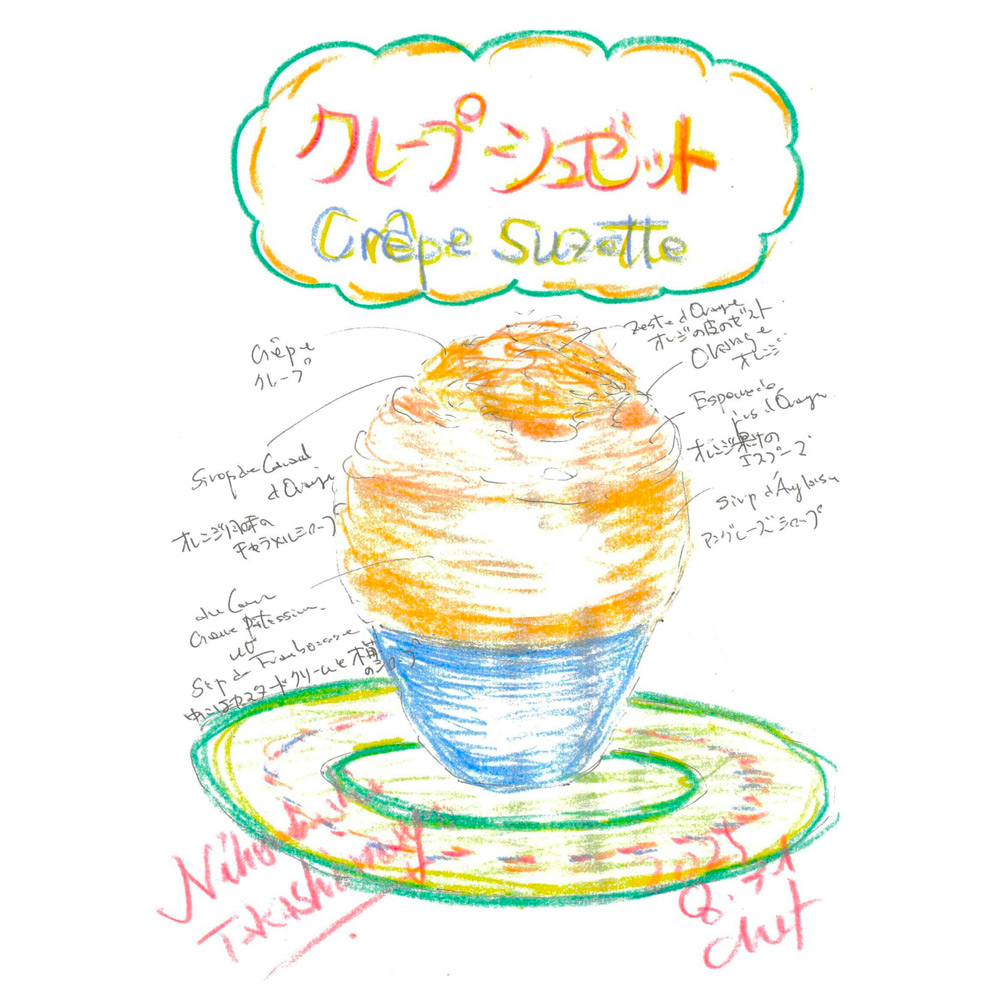 クレープシュゼット
Crêpe Suzette
Crêpe
クレープ
Sirop de
d'Orange
オレンジ風味の
キャラメルシロップ
Crème Pâtissière
et
Framboise
中にはカスタードクリームと木苺
のシロップ
Zeste d'Orange
オレンジの皮のゼスト
Orange
オレンジ
Espouma de
Jus d'Orange
オレンジ果汁の
エスプーマ
Sirop d'Anglaise
アングレーズシロップ
Chef